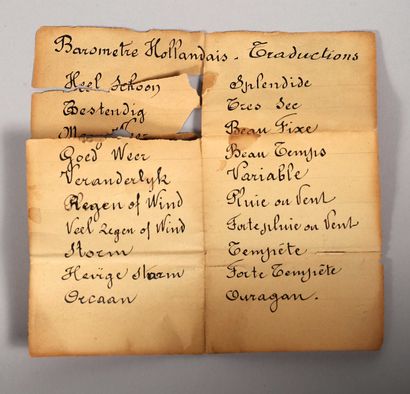 Barometre Hollandais - Traductions
Heel Schoon Splendide
Bestendig Tres Sec
Beau Fixe
Goed Weer Beau Temps
Veranderlyk Variable
Regen of Wind Pluie ou Vent
Veel Regen of Wind Forte pluie ou Vent
Storm Tempête
Hevige Storm Forte Tempête
Orcaan Ouragan.